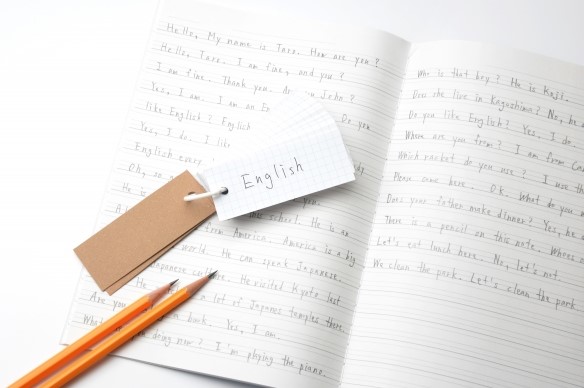 Hello, My name is Taro. How are you?
Hello, Taro. I am fine, and you?
I am fine. Thank you. Are you John?
Yes, I am. I am an En Do you
like English? English
Yes, I do. I like
English every
Oh, so
He is
school. He is an
from America. America is a big
world. He can speak Japanese.
Japanese culture. He visited Kyoto last
He a lot of Japanes temples there.
Are you book. Yes, I am.
What doing now? I'm phying the piano.
English
Who is that boy? He is Koji.
Does she live in Kagoshima? No, he
Do you like English? Yes, I do.
Where are you form? I am form Can
Which racket do you use? I use
Please come here. Ok. What do you
Does your father make dinner? Yes, he
There is a pencil on this note. Wheres
Let's eat lunch here. No, let's not.
We clean the park. Let's clean the park.